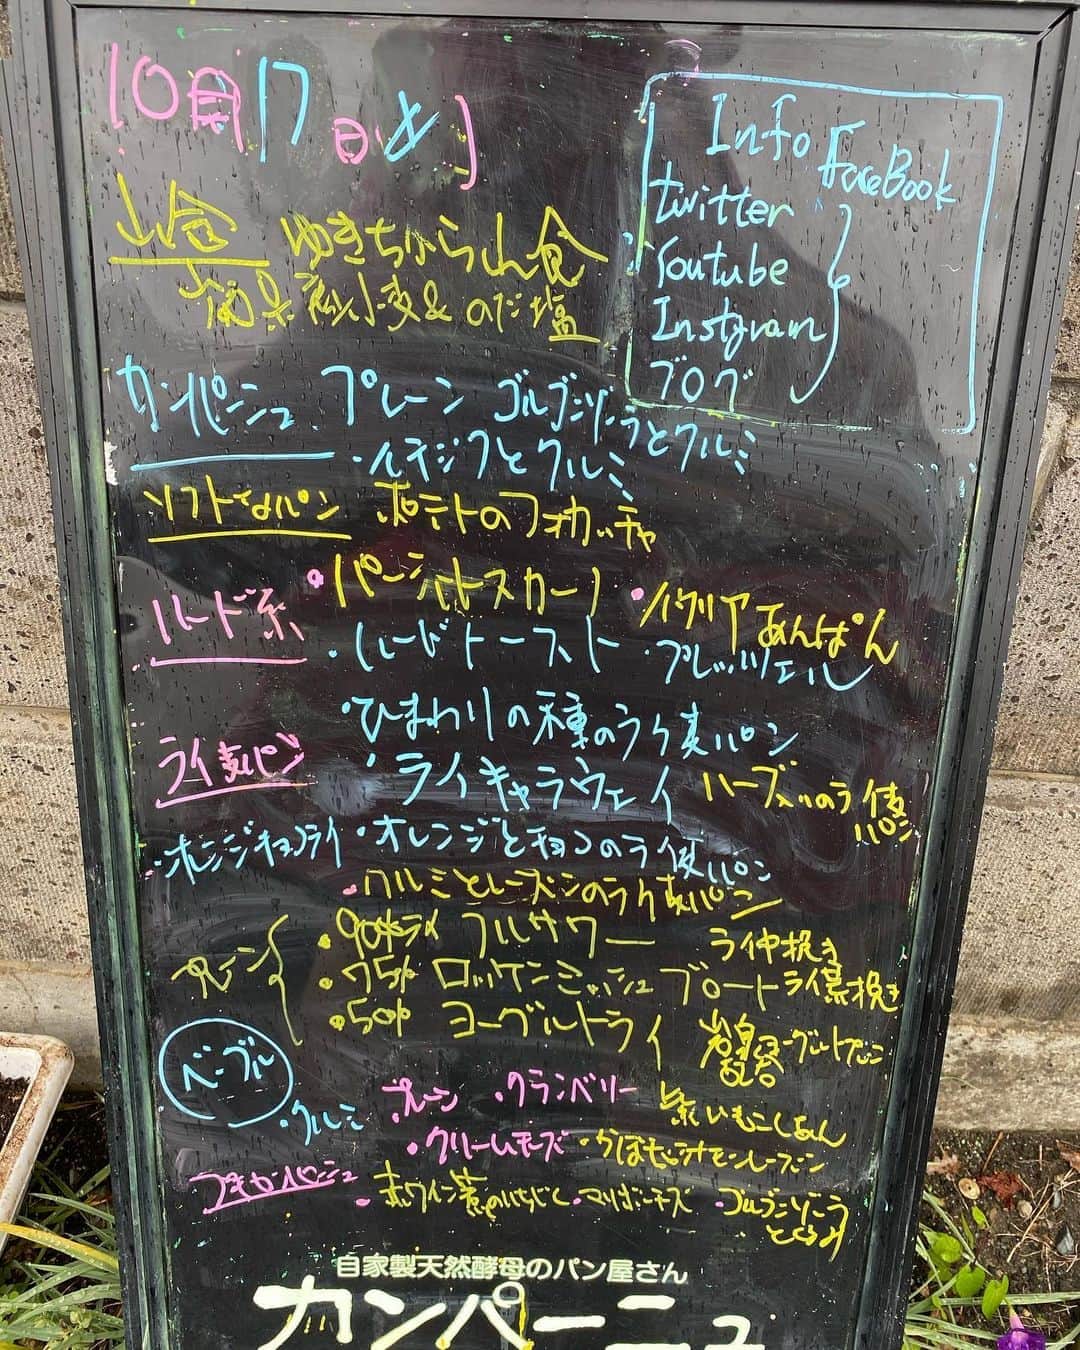 10月17日
Info
FaceBook
twitter
Youtube
Instgram
ブログ
山食 ゆきちから山食
南 小麦 & のだ塩
カンパーニュ プレーン ゴルゴンゾーラとクルミ
・イチジクとクルミ
ソフトなパン ポテトのフォカッチャ
ハード系
・イタリアあんぱん
・ハードトースト ・プレッツェル
・ひまわりの種のライ麦パン
ライ麦パン
・ライキャラウェイ
・オレンジチョコライ ・オレンジとチョコのライ麦パン
・クルミとレーズンのライ麦パン
プレーン
・90%ライ フルサワー ライ中挽き
・75% ロッケンミッシュブロート ライ 挽き
・50% ヨーグルトライ
ベーグル
・クルミ
プレーン ・クランベリー 紫いもこしあん
・クリームチーズ
プチカンパーニュ
・赤ワイン いちじく ・マリボーチーズ ・ゴルゴンゾーラとくるみ
自家製天然酵母のパン屋さん
カンパーニュ